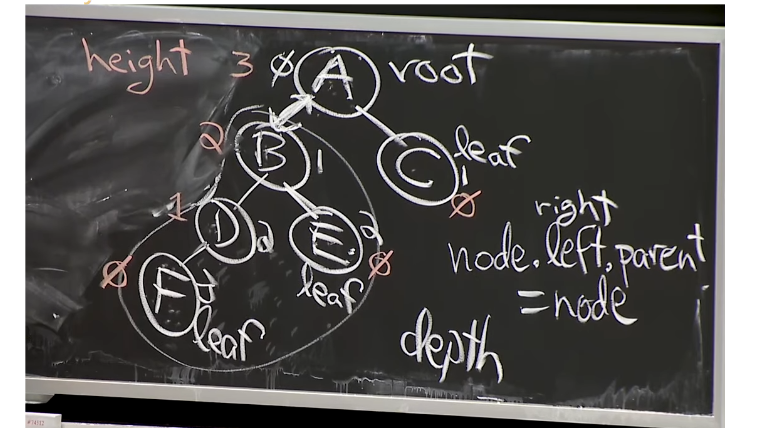 height 3 ∅ A root
2 B 1 C leaf 1 ∅
1 D 2 E 2 ∅
∅ F 3 leaf
leaf
right
node.left.parent
=node
depth